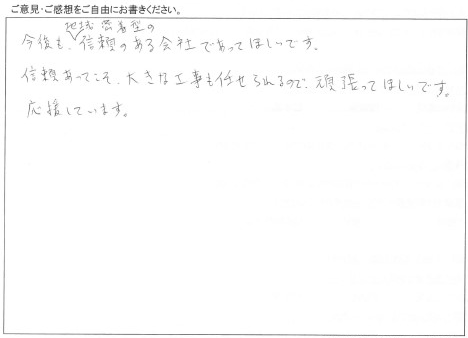 ご意見・ご感想をご自由にお書きください。
今後も、地域密着型の信頼のある会社であってほしいです。
信頼あってこそ、大きな工事も任せられるので、頑張ってほしいです。
応援しています。